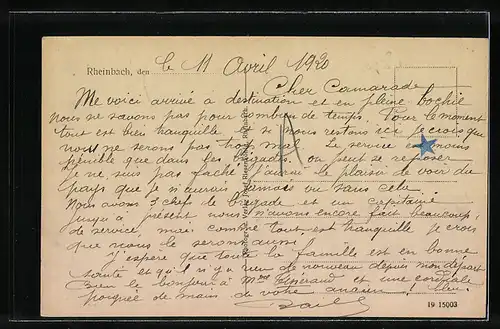 Rheinbach, den le 11 Avril 1920
Cher Camarade
Me voici arrivé a destination et en pleine bochie
nous ne savons pas pour combien de temps. Pour le moment
tout est bien tranquille et si nous restons ici je crois que
nous ne serons pas trop mal. Le service est moins
pénible que dans les brigades on peut se reposer
je ne suis pas faché j'aurai le plaisir de voir du
pays que je n'aurais jamais vu sans cela
Nous avons 3 chefs de brigade et un capitaine
jusqu'a présent nous n'avons encore fait beaucoup
de service, mais comme tout est tranquille je crois
que nous le serons aussi
J'espère que toute la famille est en bonne
santé et qu'il n'y a rien de nouveau depuis mon départ
Bien le bonjour à Mme et une cordiale
poignée de mains de votre ancien
19 15003